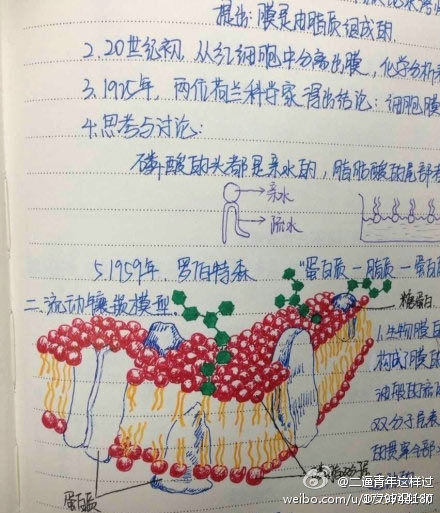 提出:膜是由脂质组成的.
2.20世纪初,从红细胞中分离出膜,化学分析
3.1925年,两位荷兰科学家得出结论:细胞膜
4.思考与讨论:
磷酸的头都是亲水的,脂肪酸的尾部
亲水
疏水
5.1959年,罗伯特森 "蛋白质—脂质—蛋白
二.流动镶嵌模型.
糖蛋白
1.生物膜的
构成了膜的
双分子层
的贯穿全部
蛋白质
@二逼青年这样过
weibo.com/u/